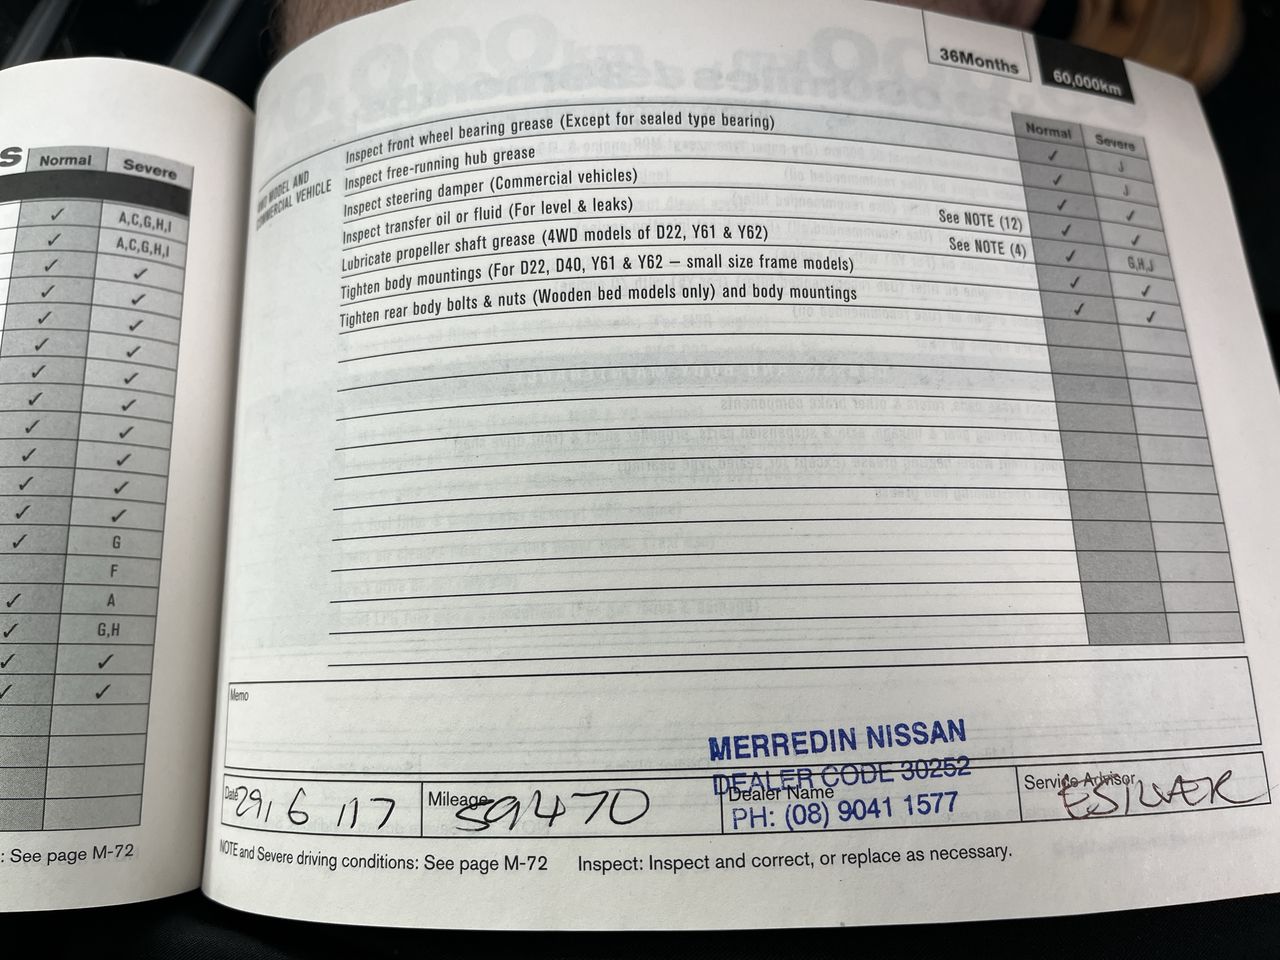 S Normal Severe
✓ A,C,G,H,I
✓ A,C,G,H,I
✓ ✓
✓ ✓
✓ ✓
✓ ✓
✓ ✓
✓ ✓
✓ ✓
✓ ✓
✓ ✓
✓ ✓
✓ G
F
✓ A
✓ G,H
✓ ✓
✓ ✓
: See page M-72
36Months 60,000km
Normal Severe
MODEL AND
COMMERCIAL VEHICLE
Inspect front wheel bearing grease (Except for sealed type bearing) ✓ J
Inspect free-running hub grease ✓ J
Inspect steering damper (Commercial vehicles) ✓ ✓
Inspect transfer oil or fluid (For level & leaks) See NOTE (12) ✓ ✓
Lubricate propeller shaft grease (4WD models of D22, Y61 & Y62) See NOTE (4) ✓ G,H,J
Tighten body mountings (For D22, D40, Y61 & Y62 – small size frame models) ✓ ✓
Tighten rear body bolts & nuts (Wooden bed models only) and body mountings ✓ ✓
Memo
MERREDIN NISSAN
DEALER CODE 30252
PH: (08) 9041 1577
Date 29/6/17 Mileage 59470 Dealer Name Service Advisor E SILVER
NOTE and Severe driving conditions: See page M-72 Inspect: Inspect and correct, or replace as necessary.